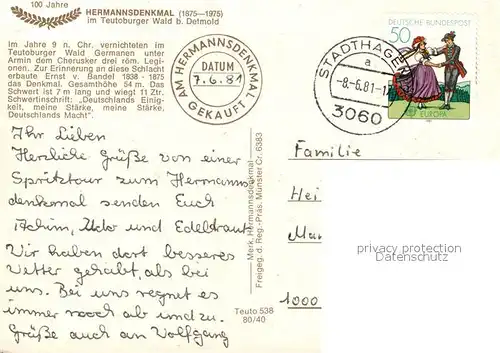 100 Jahre
HERMANNSDENKMAL (1875—1975)
im Teutoburger Wald b. Detmold
Im Jahre 9 n. Chr. vernichteten im
Teutoburger Wald Germanen unter
Armin dem Cherusker drei röm. Legi-
onen. Zur Erinnerung an diese Schlacht
erbaute Ernst v. Bandel 1838 - 1875
das Denkmal. Gesamthöhe 54 m. Das
Schwert ist 7 m lang und wiegt 11 Ztr.
Schwertinschrift: „Deutschlands Einig-
keit, meine Stärke, meine Stärke,
Deutschlands Macht".
AM HERMANNSDENKMAL
DATUM
7.6.81
GEKAUFT
STADTHAGEN
a
-8.-6.81-1
3060
DEUTSCHE BUNDESPOST
50
EUROPA
Ihr Lieben
Herzliche Grüße von einer
Spritztour zum Hermanns
denkmal senden Euch
Achim, Udo und Edeltraut
Wir haben dort besseres
Wetter gehabt, als bei
uns. Bei uns regnet es
immer noch ab und zu.
Grüße auch an Wolfgang
Merk, Hermannsdenkmal
Freigeg. d. Reg.-Präs. Münster Cr. 6383
Teuto 538
80/40
Familie
Hei
1000
privacy protection
Datenschutz